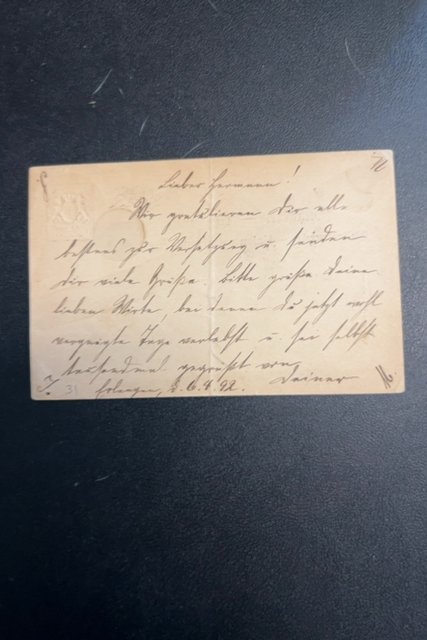 Lieber Hermann!
Wir gratulieren Dir alle
bestens zur Versetzung u. senden
Dir viele Grüße. Bitte grüße Deine
lieben Wirte, bei denen Du jetzt wohl
vergnügte Tage verlebst u. sei selbst
tausendmal gegrüßt von
Erlangen, d. 6.4.92. Deiner